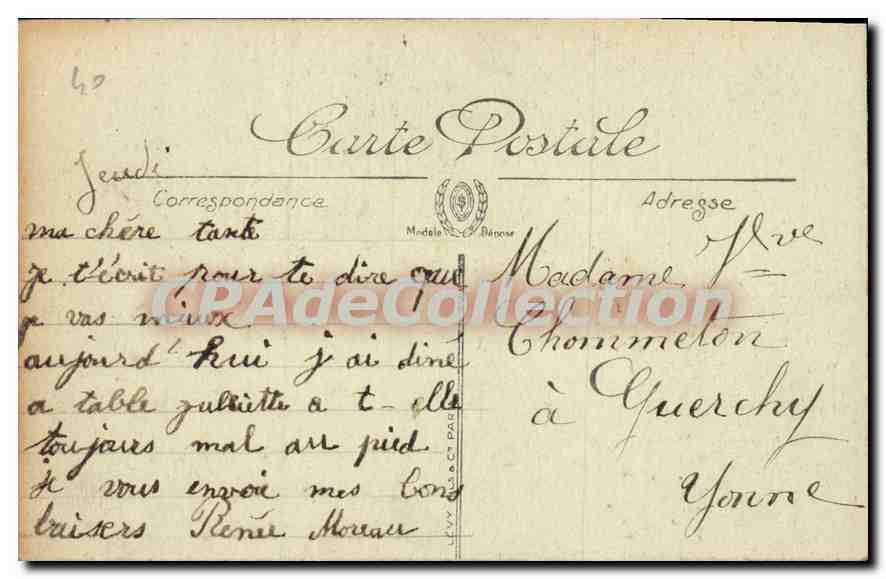 40
Carte Postale
Jeudi
Correspondance
Adresse
Modèle Déposé
ma chére tante
je t'écrit pour te dire que
je vas mieux
aujourd'hui j'ai diné
a table juliette a t-elle
toujours mal au pied
je vous envoie mes bons
baisers Renée Moreau
Madame Vve
Chommeton
à Guerchy
Yonne
LEVY FILS & Cie PARIS
CPAdeCollection